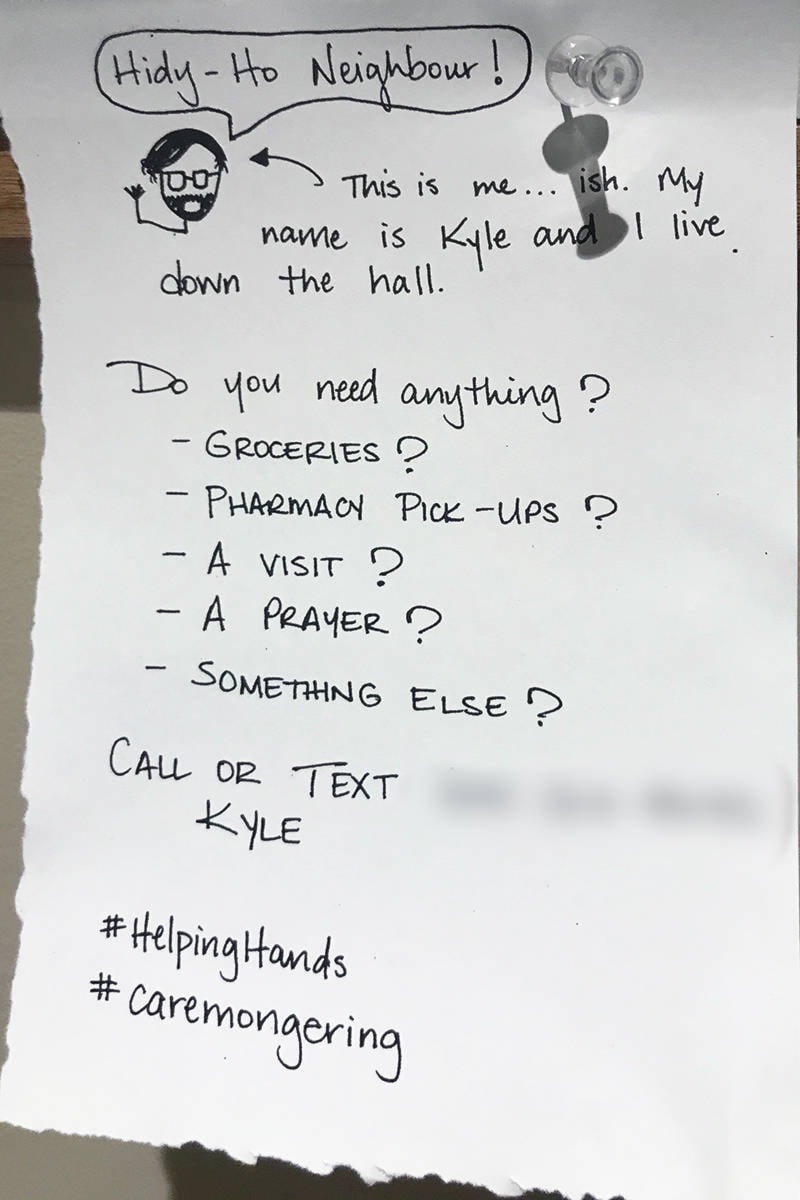 Hidy-Ho Neighbour!
This is me... ish. My
name is Kyle and I live
down the hall.
Do you need anything?
- GROCERIES?
- PHARMACY PICK-UPS?
- A VISIT?
- A PRAYER?
- SOMETHNG ELSE?
CALL OR TEXT
KYLE
#HelpingHands
#caremongering